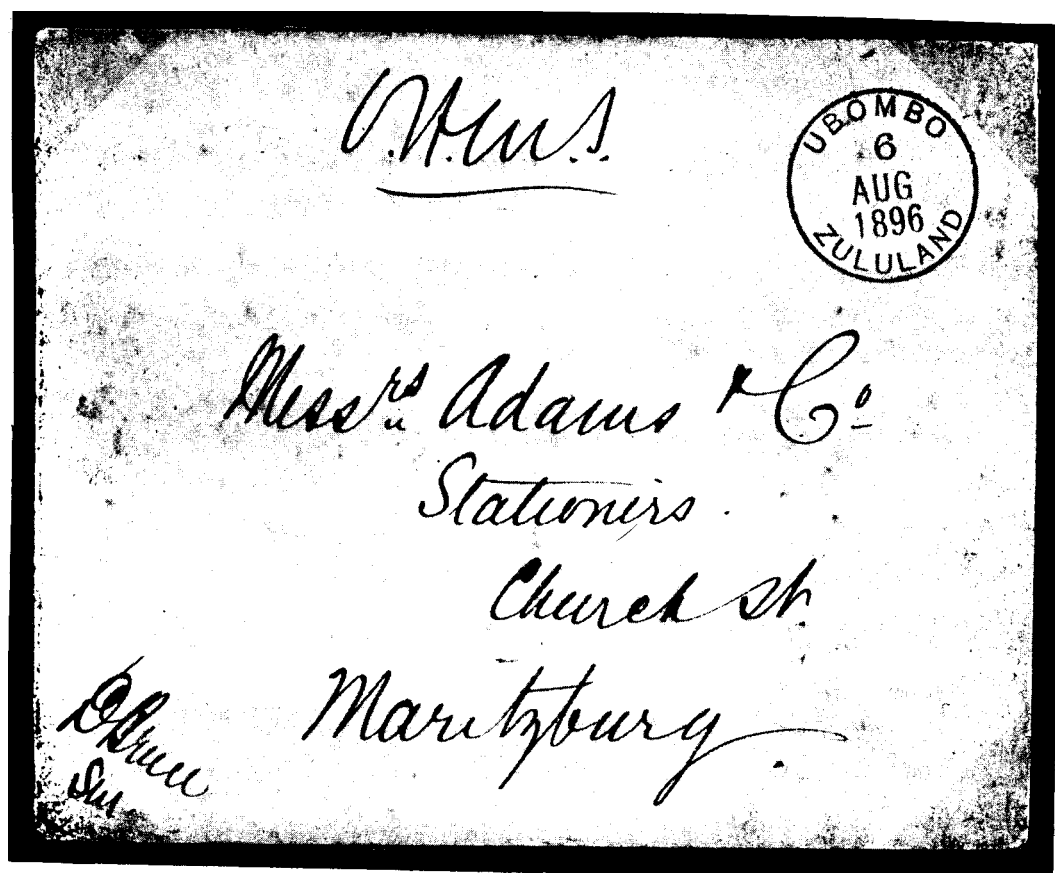 O.H.M.S.
UBOMBO
6
AUG
1896
ZULULAND
Messrs Adams & Co
Stationers
Church St.
Maritzburg
D Bruce